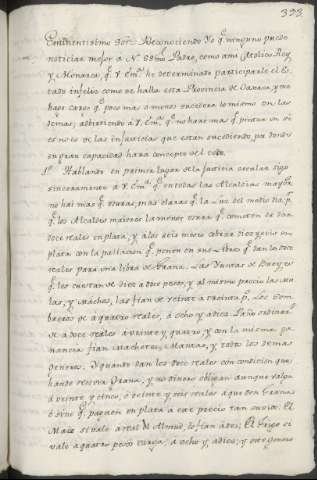 393.
Eminentissimo Señor Reconociendo Yo q. ninguno puede
noticiar mejor a Nro SSmo Padre, como ami Catolico Rey
y Monarca, q. V. Emª. he determinado participarle el es
tado infelis como se halla esta Provincia de Oaxaca, y me
hago cargo q. poco mas o menos sucedera lo mismo en las
demas, advirtiendo a V. Emª. q. no hare mas q. pintar en si
es no es de las injusticias que estan sucediendo, pa donde
su gran capacidad hara concepto del todo.
1º. Hablando en primer lugar de la Justicia secular digo
sinceramente a V. Emª. q. en todas las Alcaldias mayores
no hai mas q. usuras, mas claras q. la Luz del medio dia, p.
q. los Alcaldes maiores la menor usura q. cometen es dar
doce reales en plata, y a los seis meses cobrar dies y seis en
plata con la palliacion q. ponen en sus Libros q. dan los doce
reales para una libra de Grana. Las Yuntas de Bueyes
q. les cuestan de diez a doce pesos, y al mismo precio las mu
las, y Machos, las fian de veinte a treinta p. Los Som
breros de a quatro reales, a ocho y a dies. Paño ordinario
de a doce reales a veinte y quatro, y con la misma ga
nancia fian Machetes, Mantas, y todos los demas
generos. Y quando dan los doce reales con condicion que
hande recivir Grana, y no dinero obligan aunque valga
a veinte y cinco, o veinte y seis reales a que den Grana
o sino q. paguen en plata a ese precio tan subido. El
Maiz si vale a real el Almud, lo fian a dos; El trigo si
vale a quatro pesos carga, a ocho y a dies; y este genero